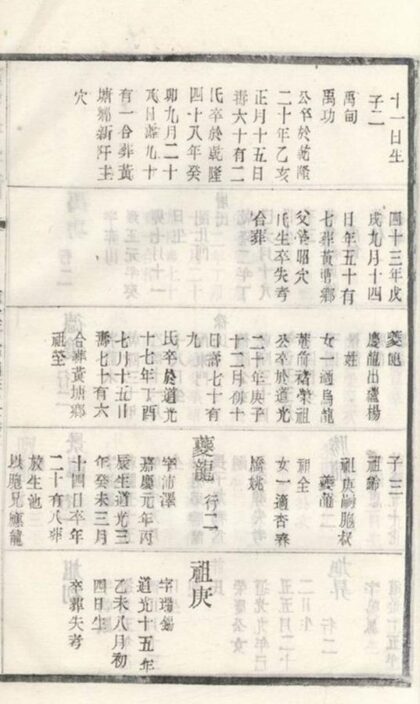 十一日生
子二
禹甸
禹功
公卒於乾隆
二十年乙亥
正月十五日
壽六十有二
氏卒於乾隆
四十八年癸
卯九月二十
八日壽九十
有一合葬黃
塘鄉新阡圭
穴
四十三年戊
戌九月十四
日年五十有
七葬黃塘鄉
父塋昭穴
氏生卒失考
合葬
夔龍
慶龍出嗣楊
姓
女一適烏龍
菴前褚榮祖
公卒於道光
二十年庚子
十二月初十
日壽七十有
九
氏卒於道光
十七年丁酉
七月十五日
壽七十有六
合葬黃塘鄉
祖塋
子三
祖齡
祖庚嗣胞叔
夔龍
祖全
女一適杏春
橋姚
夔龍 行二
字沛澤
嘉慶元年丙
辰生道光三
年癸未三月
十四日卒年
二十有八葬
放生池
以胞兄應龍
祖庚
字瑞錫
道光十五年
乙未八月初
四日生
卒葬失考